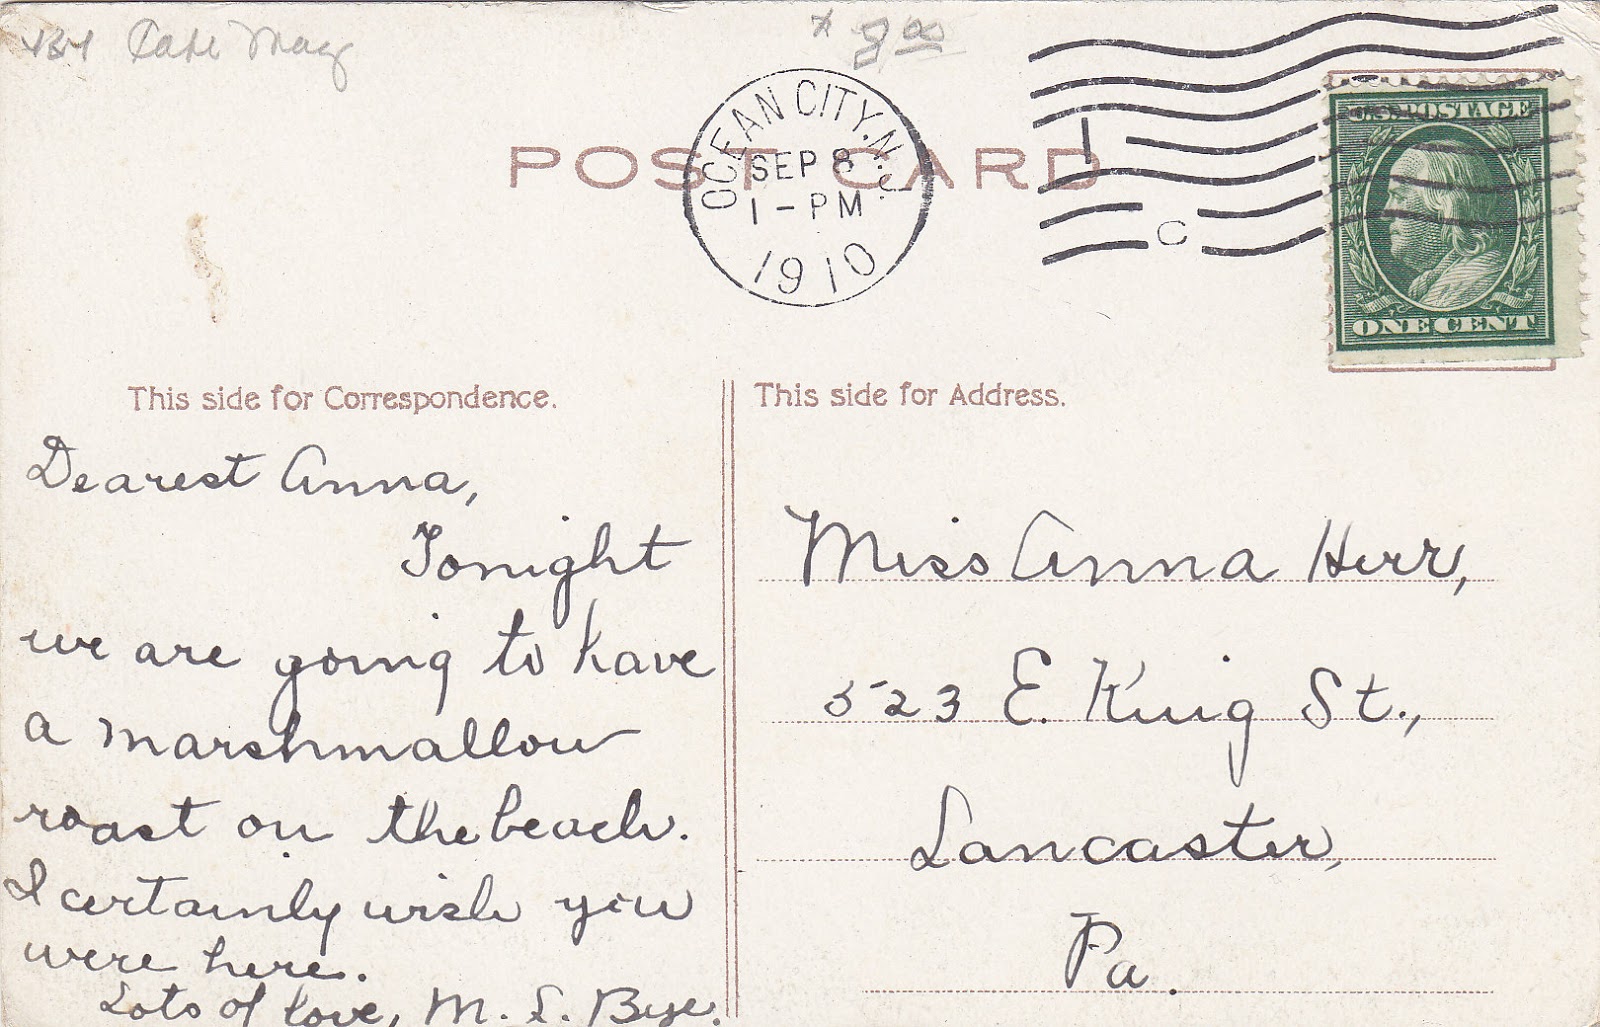 Cape May
8 00
OCEAN CITY, N.J.
SEP 8
1-PM
1910
1
C
U.S. POSTAGE
ONE CENT
POST CARD
This side for Correspondence.
Dearest Anna,
Tonight
we are going to have
a marshmallow
roast on the beach.
I certainly wish you
were here.
Lots of love, M. S. Bye.
This side for Address.
Miss Anna Herr,
523 E. King St.,
Lancaster,
Pa.